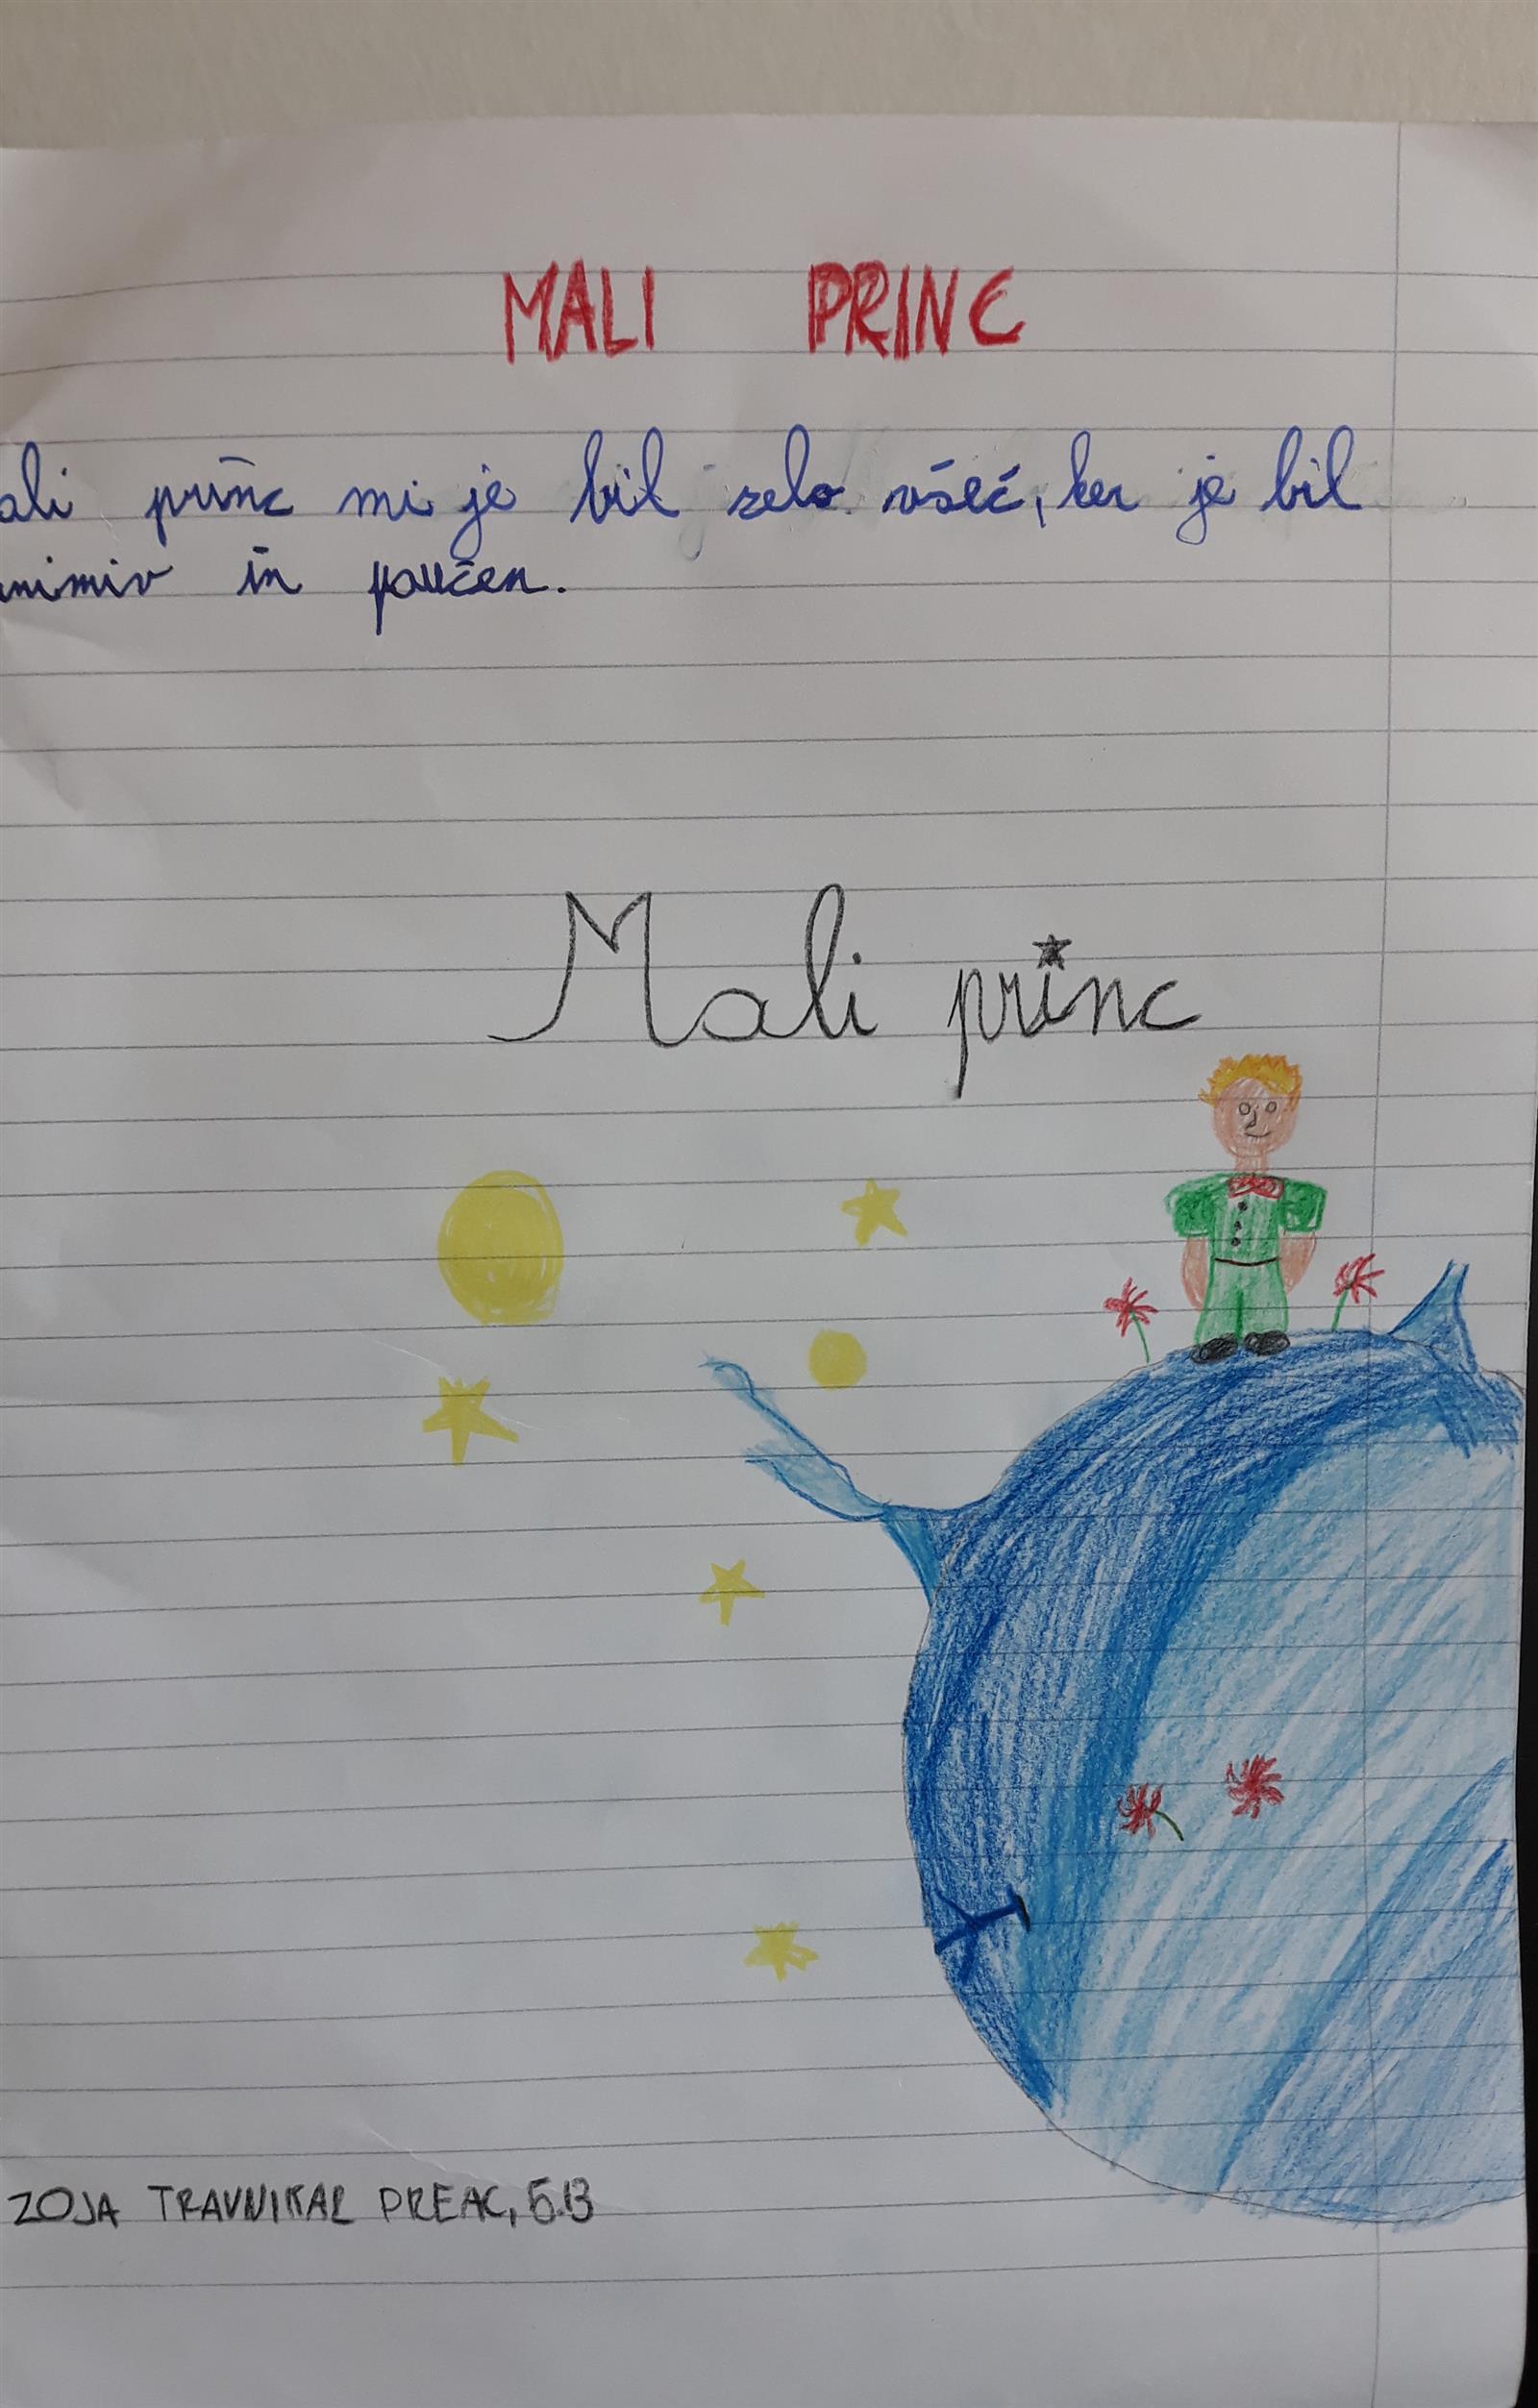 MALI PRINC
ali princ mi je bil zelo všeč, ker je bil
nimiv in poučen.
Mali princ
ZOJA TRAVNIKAR PREAC, 5.B